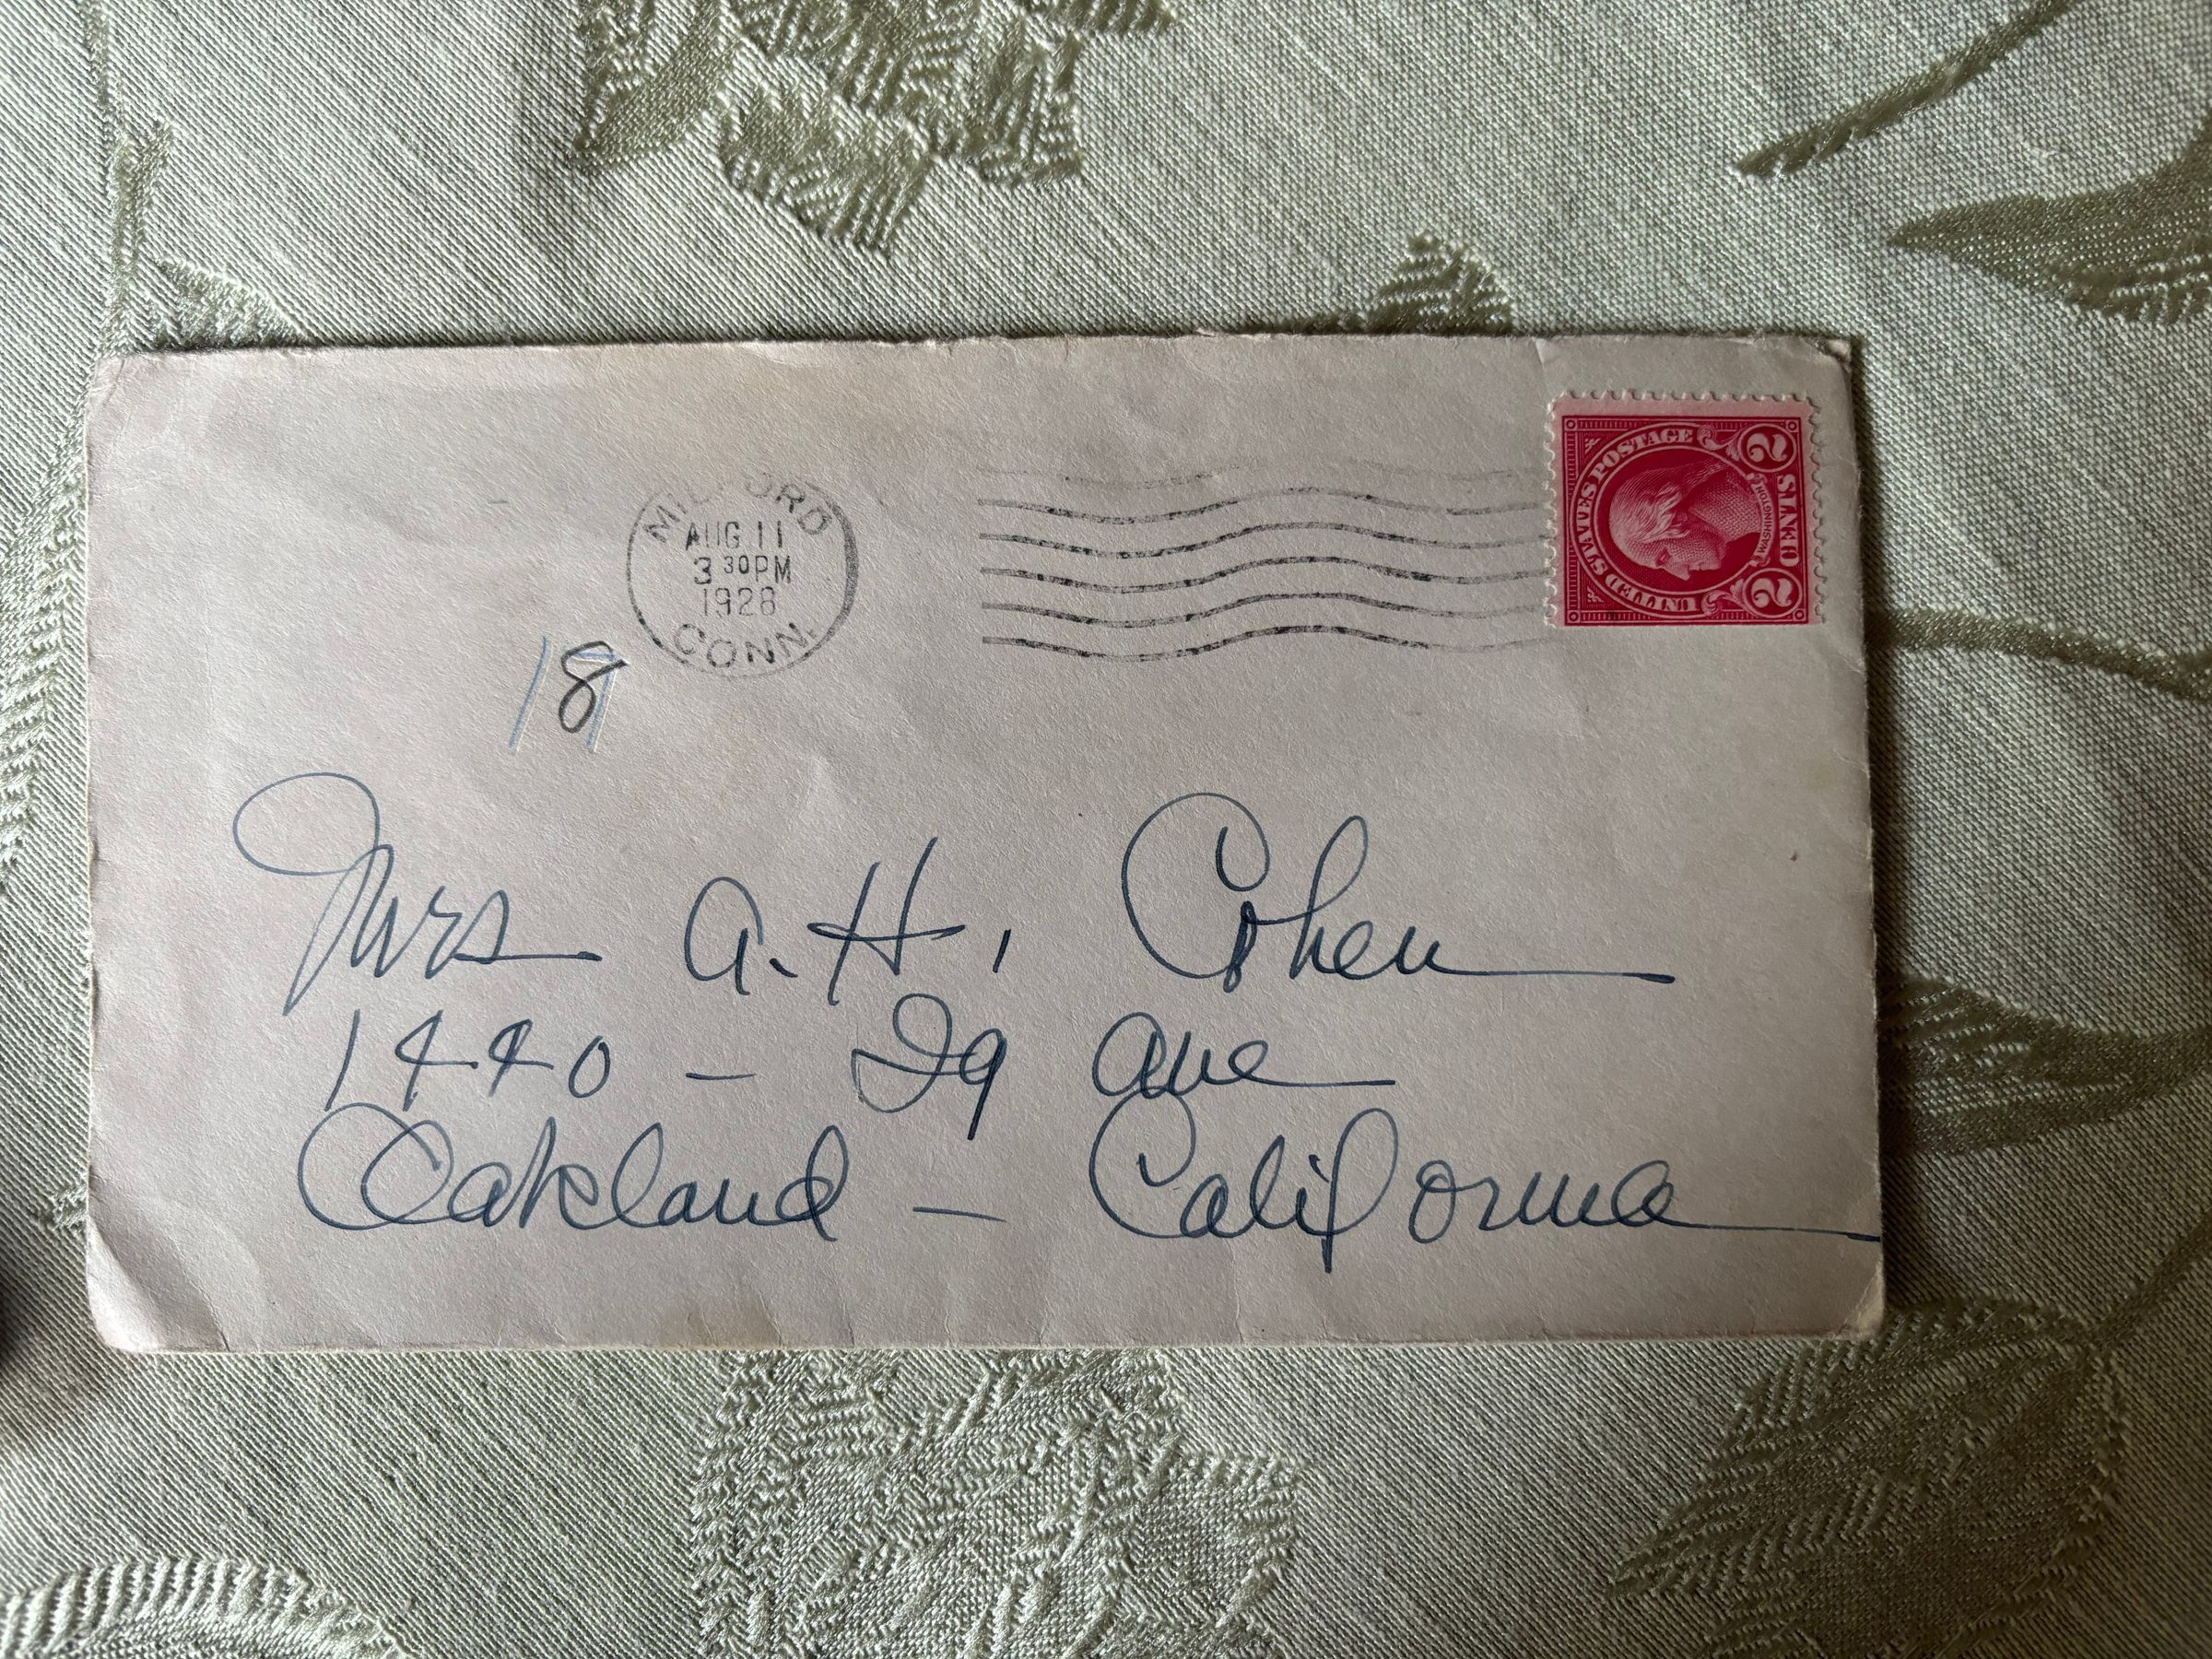 MILFORD
AUG 11
3 30 PM
1928
CONN.
UNITED STATES POSTAGE
WASHINGTON
2 CENTS 2
18
Mrs A. H. Cohen
1440 - 29 Ave
Oakland - California